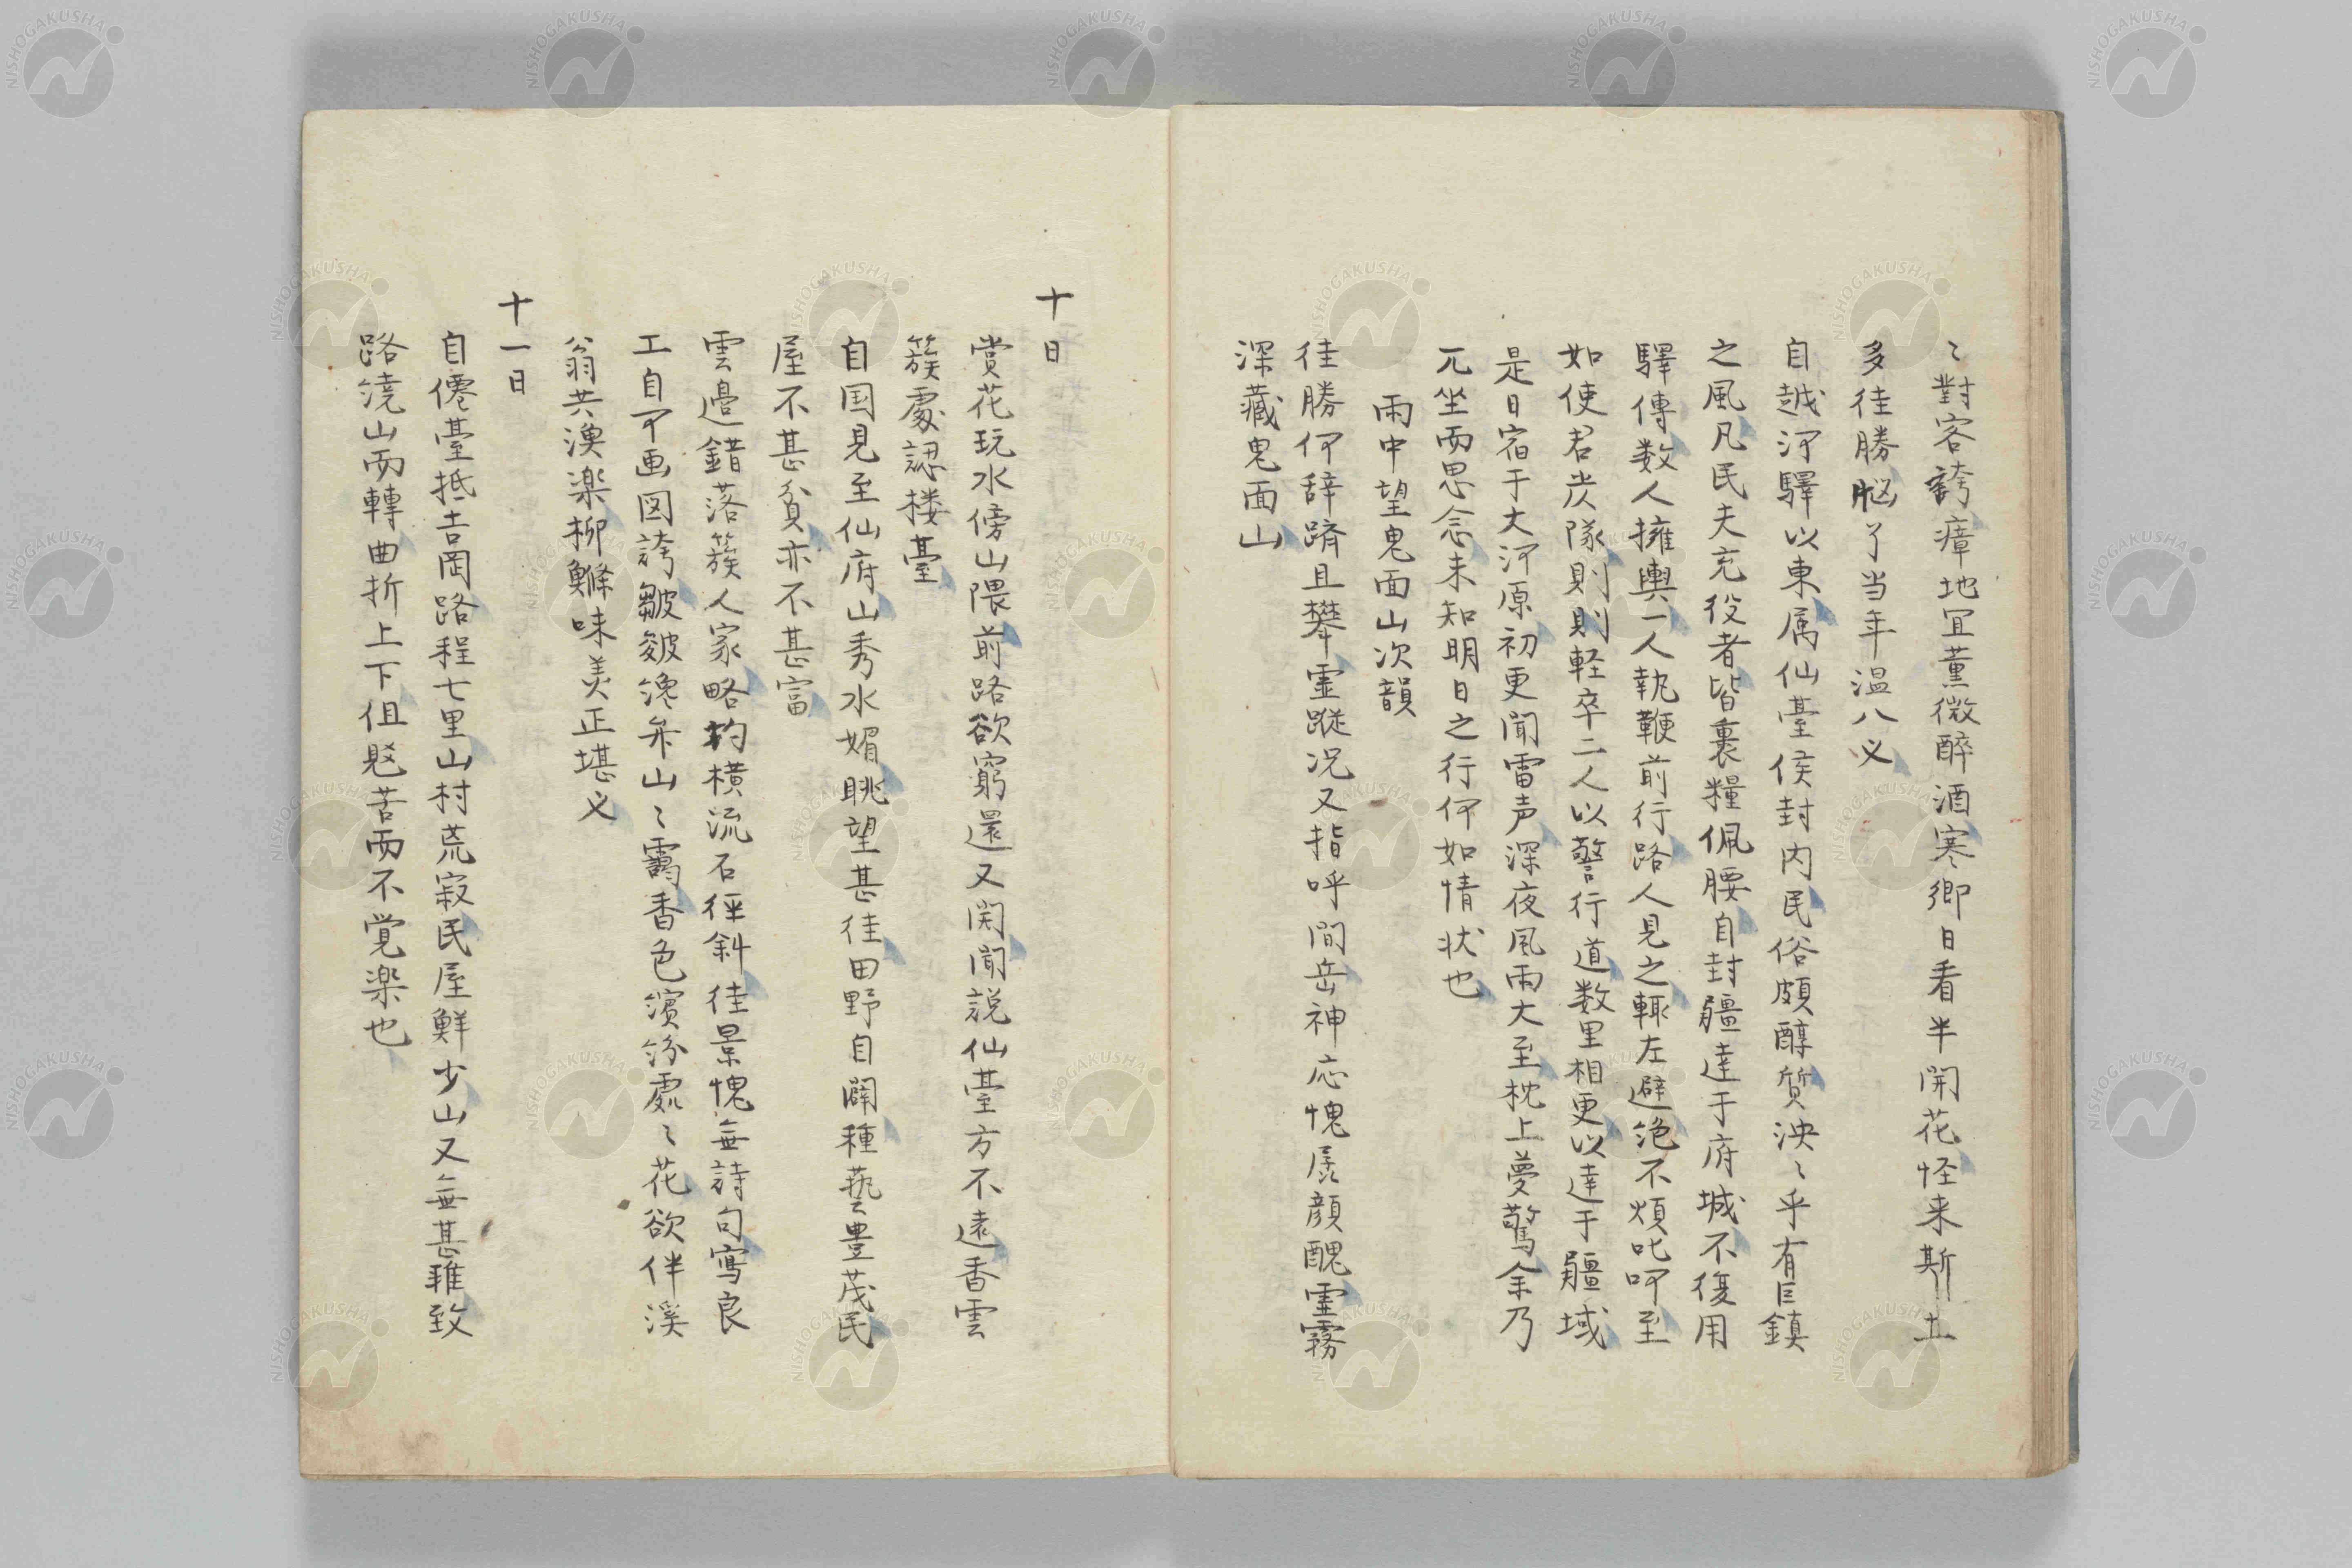 〻對客誇瘴地宜薫微醉酒寒郷日看半開花怪来斯土
多佳勝脳了当年温八义
自越河驛以東属仙臺侯封内民俗頗醇質泱〻乎有巨鎮
之風凡民夫充役者皆裹糧佩腰自封疆達于府城不復用
驛傳数人擁輿一人執鞭前行路人見之輙左避絶不煩叱呵至
如使君炭隊則則軽卒二人以警行道数里相更以達于疆域
是日宿于大河原初更聞雷声深夜風雨大至枕上夢驚余乃
兀坐而思念未知明日之行何如情状也
雨中望鬼面山次韻
佳勝何辞躋且攀霊蹤况又指呼間岳神応愧孱顔醜霊霧
深蔵鬼面山
十日
賞花玩水傍山隈前路欲窮還又開聞説仙臺方不遠香雲
簇處認楼臺
自国見至仙府山秀水媚眺望甚佳田野自闢種藝豊茂民
屋不甚貧亦不甚富
雲邉錯落簇人家略彴横流石徑斜佳景愧無詩句寫良
工自可画図誇皺皴纔弁山〻靄香色濱紛處〻花欲伴溪
翁共漁楽柳鰷味美正堪义
十一日
自僊臺抵吉岡路程七里山村荒寂民屋鮮少山又無甚雅致
路繞山而轉曲折上下但覐苦而不覚楽也